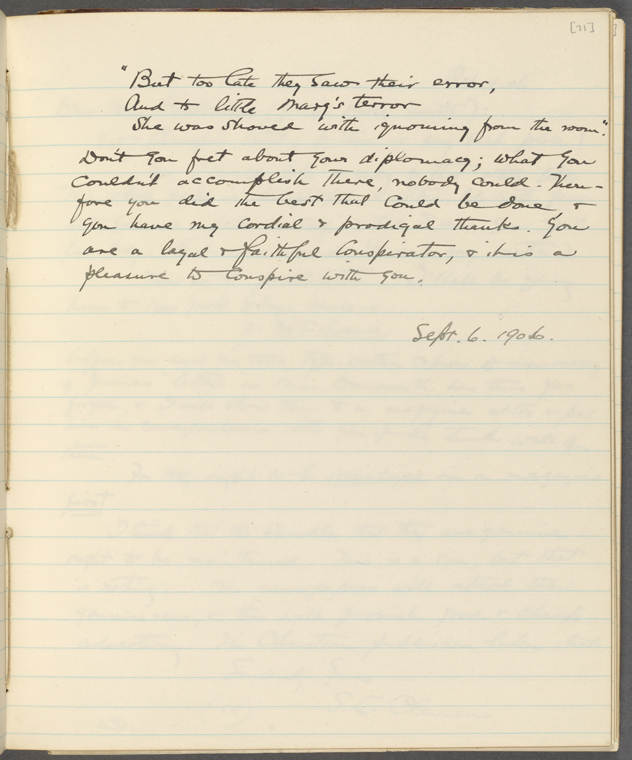 [21]
"But too late they saw their error,
And to little Mary's terror
She was shoved with ignominy from the room."
Don't you fret about your diplomacy; what you
couldn't accomplish there, nobody could. There-
fore you did the best that could be done &
you have my cordial & prodigal thanks. You
are a loyal & faithful conspirator, & it is a
pleasure to conspire with you.
Sept. 6. 1906.